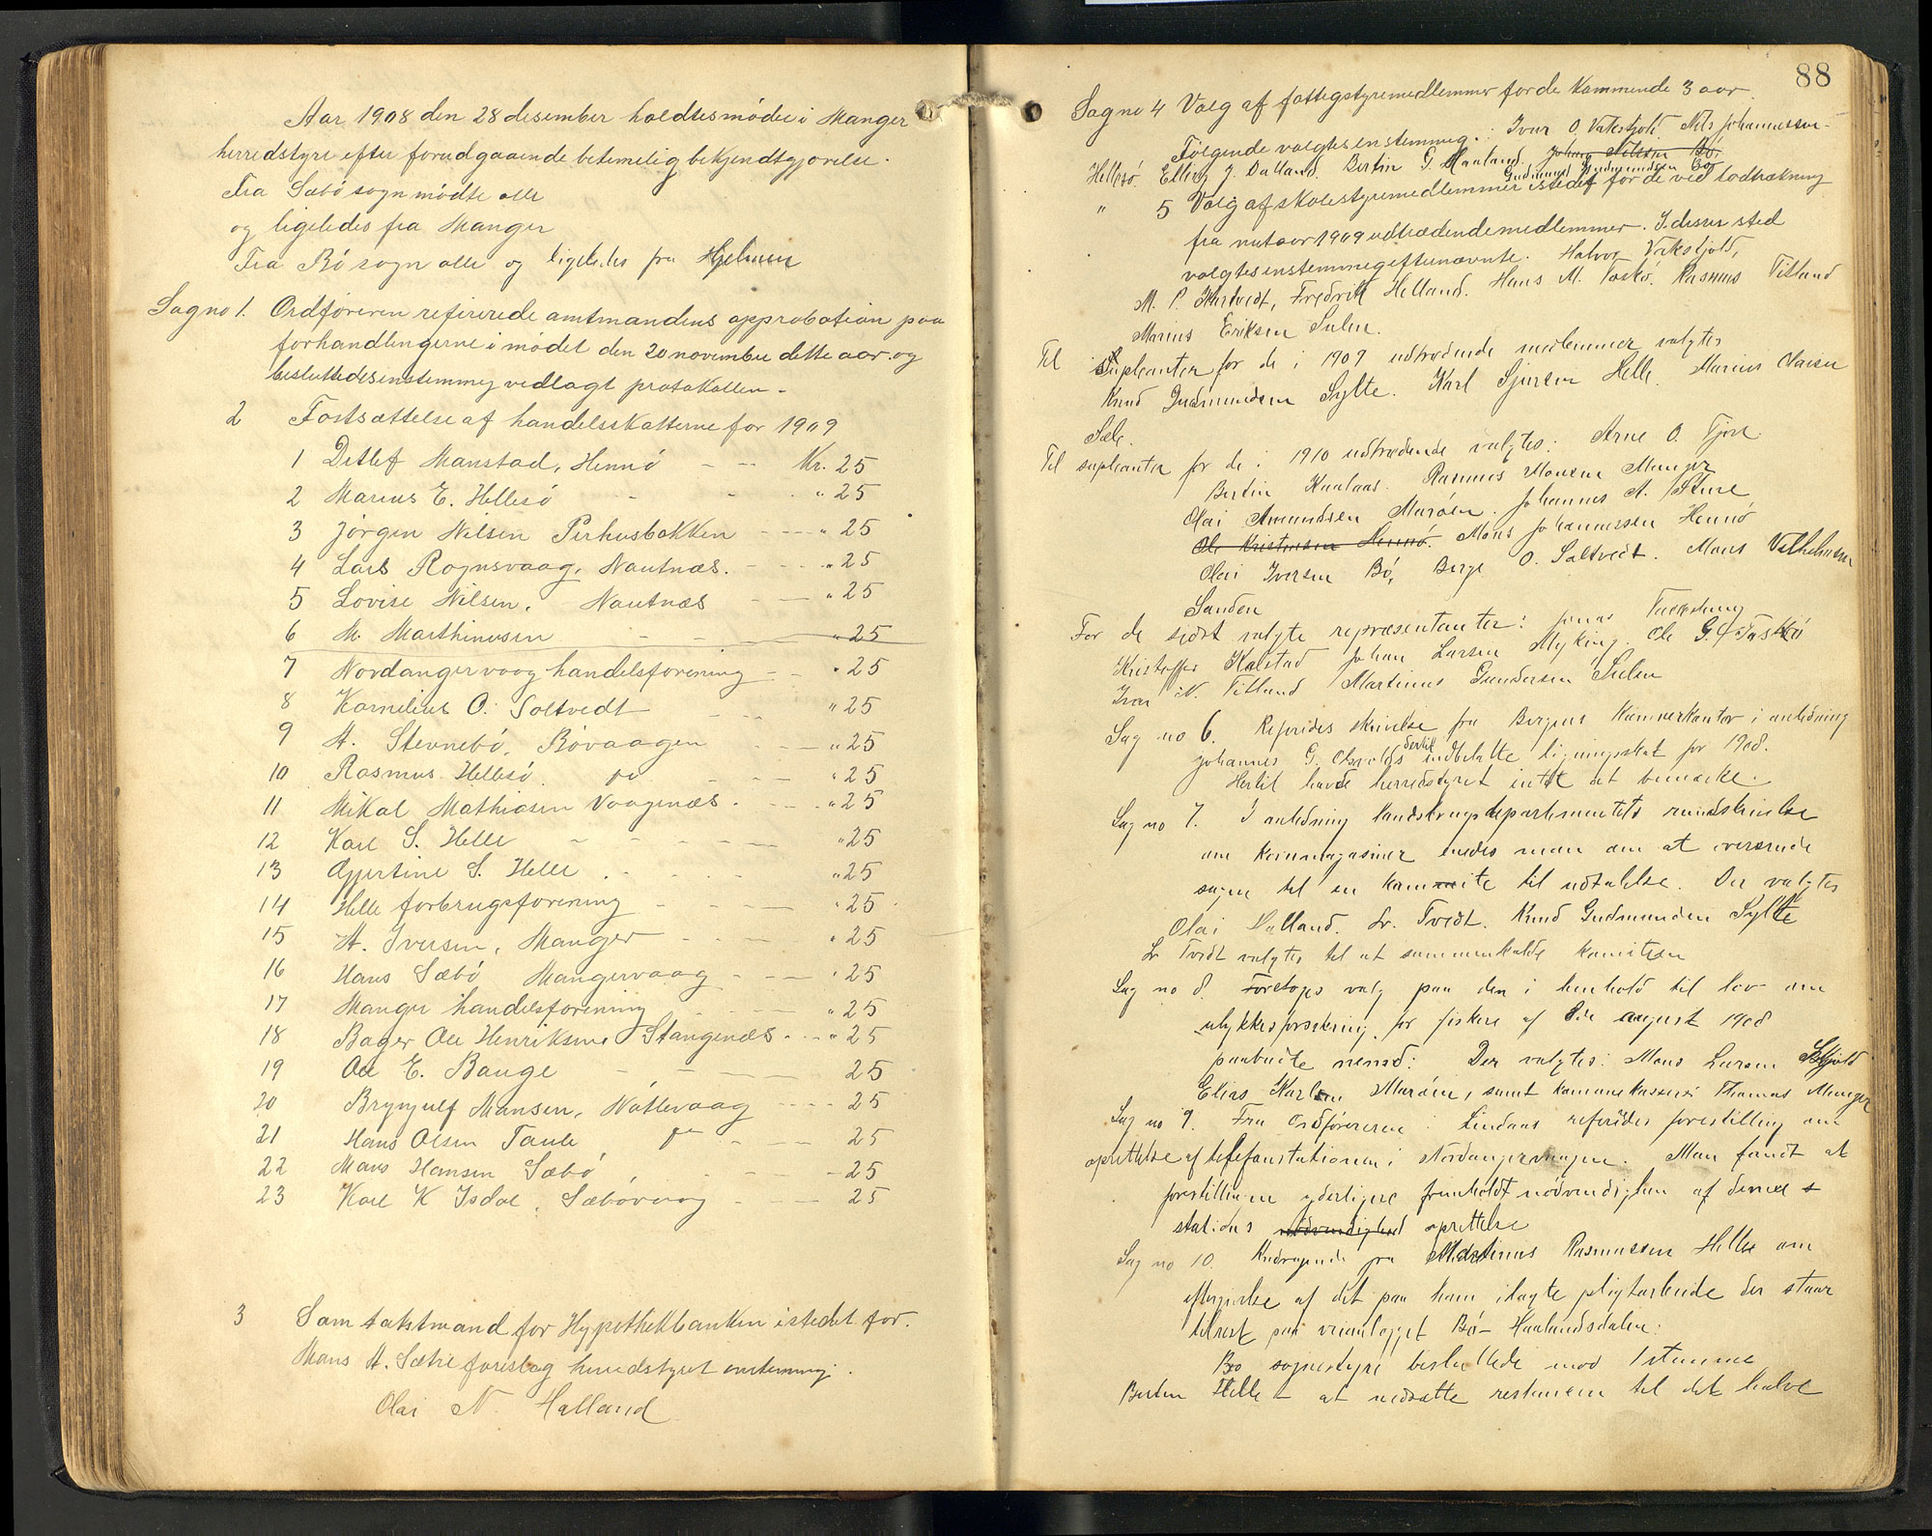 Aar 1908 den 28 desember holdtes møde i Manger
herredstyre efter forudgaaende betimelig bekjendtgjørelse.
Fra Sæbø sogn mødte alle
og ligeledes fra Manger
Fra Bø sogn alle og ligeledes fra Hjelmen
Sag no 1. Ordføreren refererede amtmandens approbation paa
forhandlingerne i mødet den 20 november dette aar og
besluttedes enstemmig vedlagt protokollen -
2 Fastsættelse af handelsskatterne for 1909
1 Detlef Manstad, Hennø - - Kr. 25
2 Marius E. Hellesø - - " 25
3 Jørgen Nilsen Perhusbakken - - - " 25
4 Lars Rognsvaag, Nautnæs. - - - " 25
5 Lovise Nilsen, Nautnæs - - " 25
6 M. Marthinusen - - - " 25
7 Nordangervaag handelsforening - - " 25
8 Kornelius O. Soltvedt - - " 25
9 A. Stevnebø, Bøvaagen - - - " 25
10 Rasmus Hellesø - - - " 25
11 Mikal Mathiasen Vaagenæs. - - - " 25
12 Karl S. Helle - - - - - " 25
13 Gjertine S. Helle . - - - - " 25
14 Helle forbrugsforening - - - - " 25
15 A. Iversen, Manger - - - " 25
16 Hans Sæbø Mangervaag - - - " 25
17 Manger handelsforening - - - " 25
18 Bager Ole Henriksen Stangenæs - - - " 25
19 Ole E. Bauge - - - - 25
20 Brynjulf Mansen, Nøttevaag - - - - 25
21 Hans Olsen Taule - - - - 25
22 Mans Hansen Sæbø - - - 25
23 Karl K Isdal, Sæbøvaag - - - 25
3 Som takstmand for Hypothekbanken istedet for
Mons A. Sætre foreslog herredstyret enstemmig.
Olai N. Halland
88
Sag no 4 Valg af fattigstyremedlemmer for de kommende 3 aar
Følgende valgtes enstemmig: Ivar O. Vakskjold. Nils Johannessen
Hellesø. Elling J. Dalland. Bertin G. Haaland. Johan Nilsen Bø,
Gudmund Gudmundsen Bø
" 5 Valg af skolestyremedlemmer istedet for de ved lodtrækning
fra nutaar 1909 udtrædende medlemmer. I deres sted
valgtes enstemmig efternævnte. Halvor Vakskjold,
M. P. Hartvedt, Fredrik Helland. Hans M. Toskø. Rasmus Titland
Marius Eriksen Sulen.
Til supleanter for de i 1909 udtrædende medlemmer valgtes
Knud Gudmundsen Sylte. Karl Sjursen Helle. Marius Olaisen
Sæle.
Til supleanter for de i 1910 udtrædende valgtes: Arne O. Fjøre
Bertin Haaland. Rasmus Monsen Manger
Olai Amundsen Marøen. Johannes A. Sture
Ole Kristensen Hennø. Mons Johannessen Hennø
Olai Iversen Bø, Berge O. Saltvedt. Mons Vilhelmsen
Sanden
For de sidst valgte repræsentanter: Jonas
Kristoffer Kalstad Johan Larsen Myking. Ole G. Toskø
Ivar N. Titland Martinus Gundersen Sulen
Sag no 6. Referides skrivelse fra Bergens Kæmnerkontor i anledning
Johannes G. Okseldts dertil indbetalte ligningsskat for 1908.
Hertil havde herredstyret intet at bemærke.
Sag no 7. I anledning landbrugsdepartementets rundskrivelse
om kornmagasiner enedes man om at oversende
sagen til en kommite til udtalelse. Der valgtes
Olai Halland. Lr. Tvedt. Knud Gudmunden Sylte
Lr Tvedt valgtes til at sammenkalde komiteen
Sag no 8. Foretoges valg paa den i henhold til lov om
ulykkesforsikring for fiskere af 8de august 1908
paabudte nemnd: Der valgtes: Mons Larsen Skjold
Elias Karlsen Marøen, samt kommunekasserer Thomas Manger
Sag no 9. Fra ordføreren i Lindaas referides forestilling om
oprettelse af telefonstationen i Nordangervaagen. Man fandt at
forestillingen yderligere fremholdt nødvendigheden af denne
stations nødvendighed oprettelse
Sag no 10. Andragende fra Martinus Rasmussen Helle om
eftergivelse af det paa ham ilagte pligtarbeide der staar
tilrest paa veianlægget Bø - Haalandsdalen.
Bø sognestyre besluttede mod 1 stemme
Bertin Helle - at nedsætte restancen til det halve